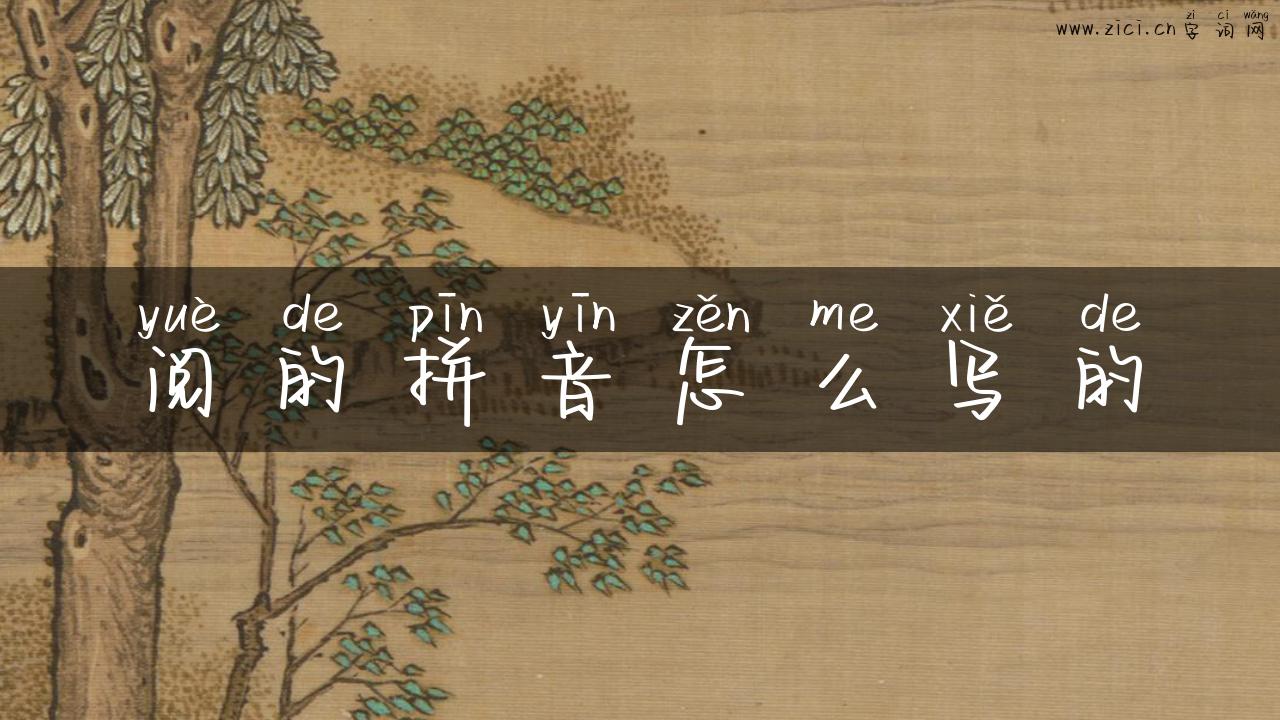 zì cí wǎng
www.zici.cn 字词网
yuè de pīn yīn zěn me xiě de
阅的拼音怎么写的